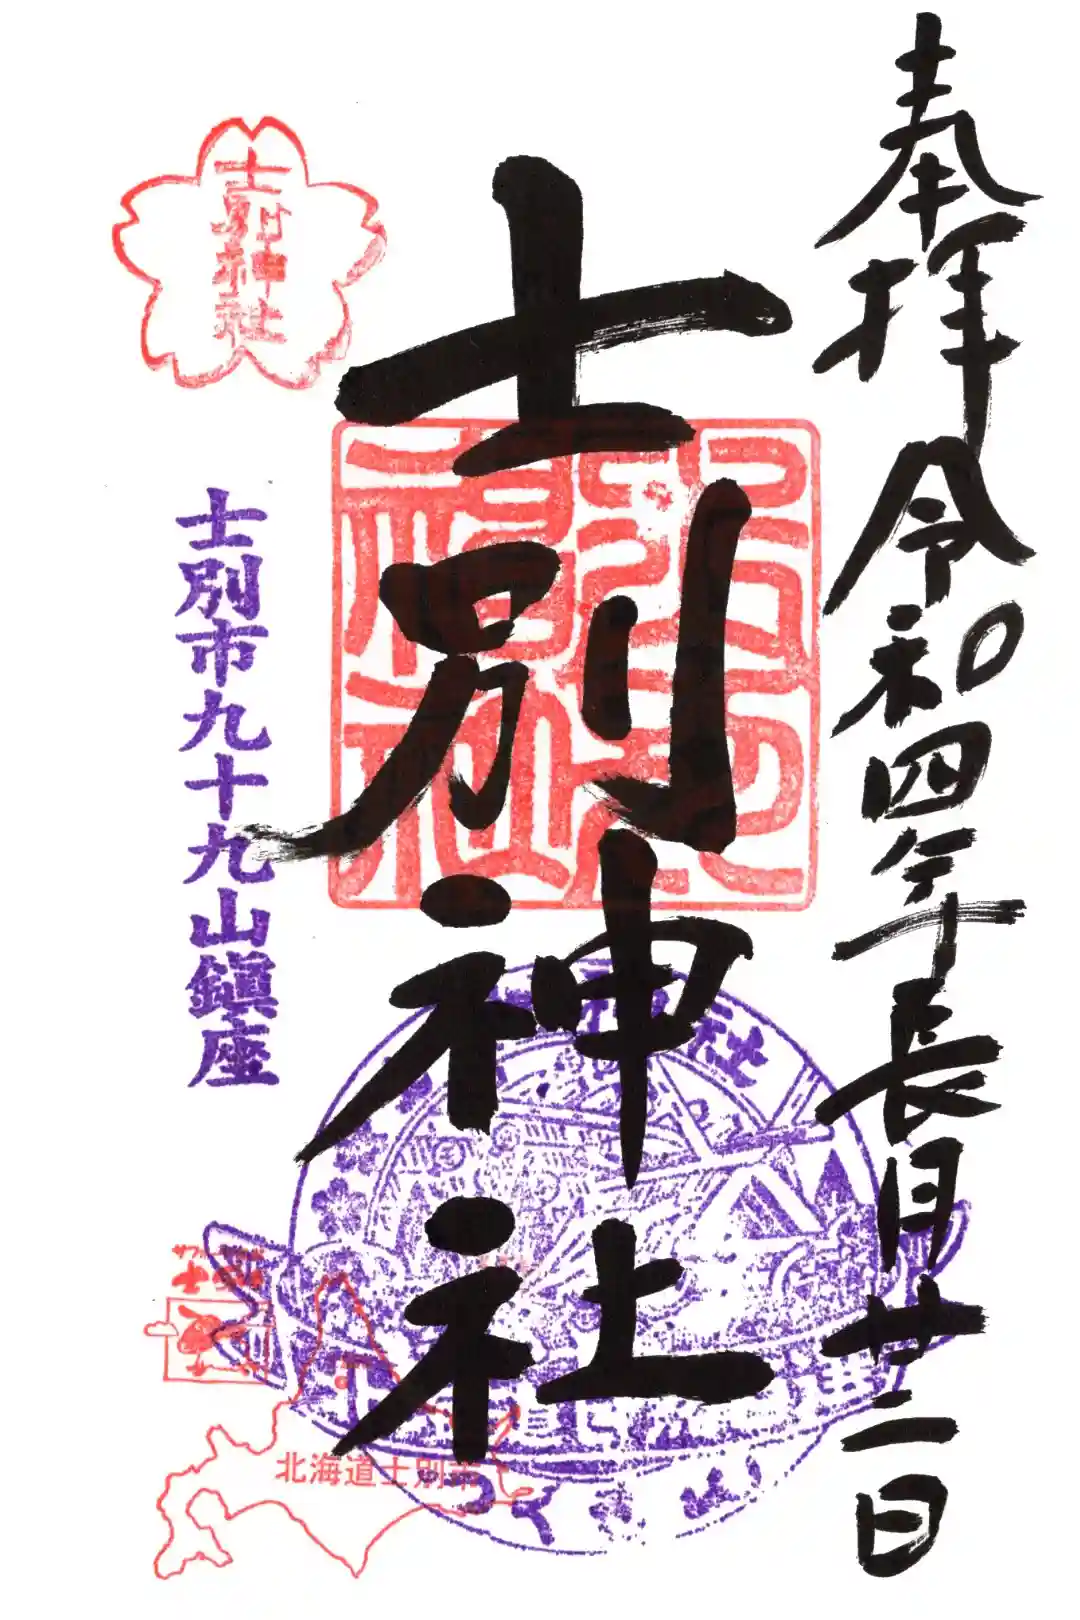 奉拝 令和四年長月廿二日
士別神社
士別神社
士別市九十九山鎮座
社
士別
北海道士別市